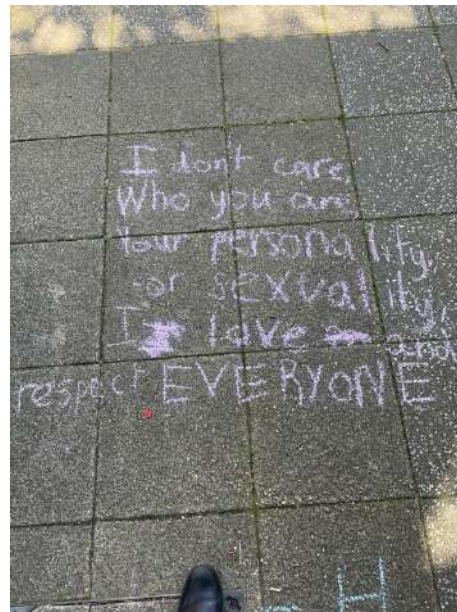 I don't care,
Who you are,
Your personality,
or sexuality,
I love and
respect EVERYONE
H